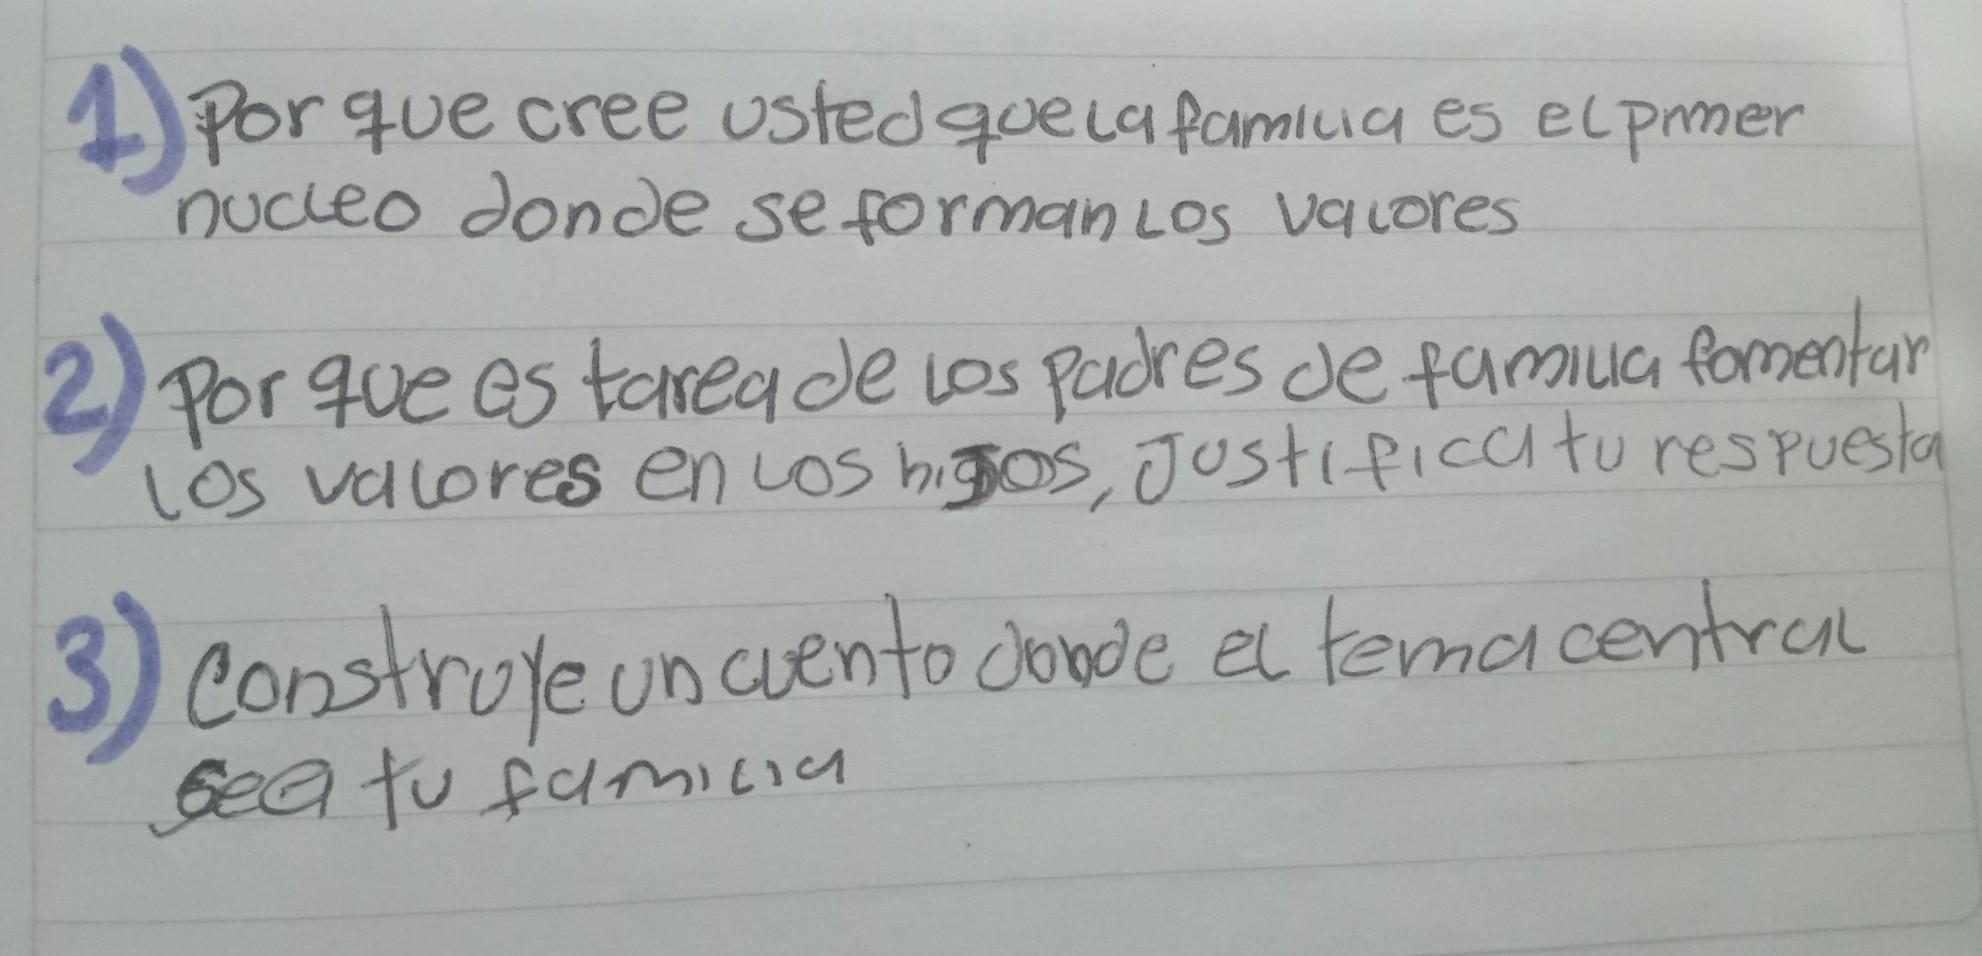 1) Por que cree usted que la familia es el primer
nucleo donde se forman los valores
2) Por que es tarea de los padres de familia fomentar
los valores en los hijos, Justifica tu respuesta
3) Construye un cuento donde el tema central
sea tu familia